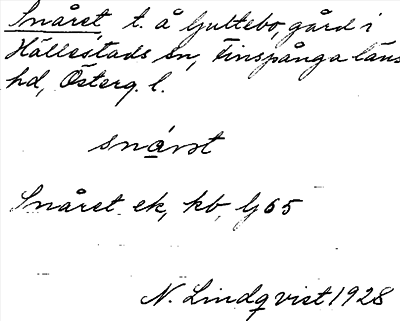 Snåret, t. å Gultebo, gård i
Hällestads sn, Finspånga läns
hd, Österg. l.
snårət
Snåret ek, kb, G 65
N. Lindqvist 1928